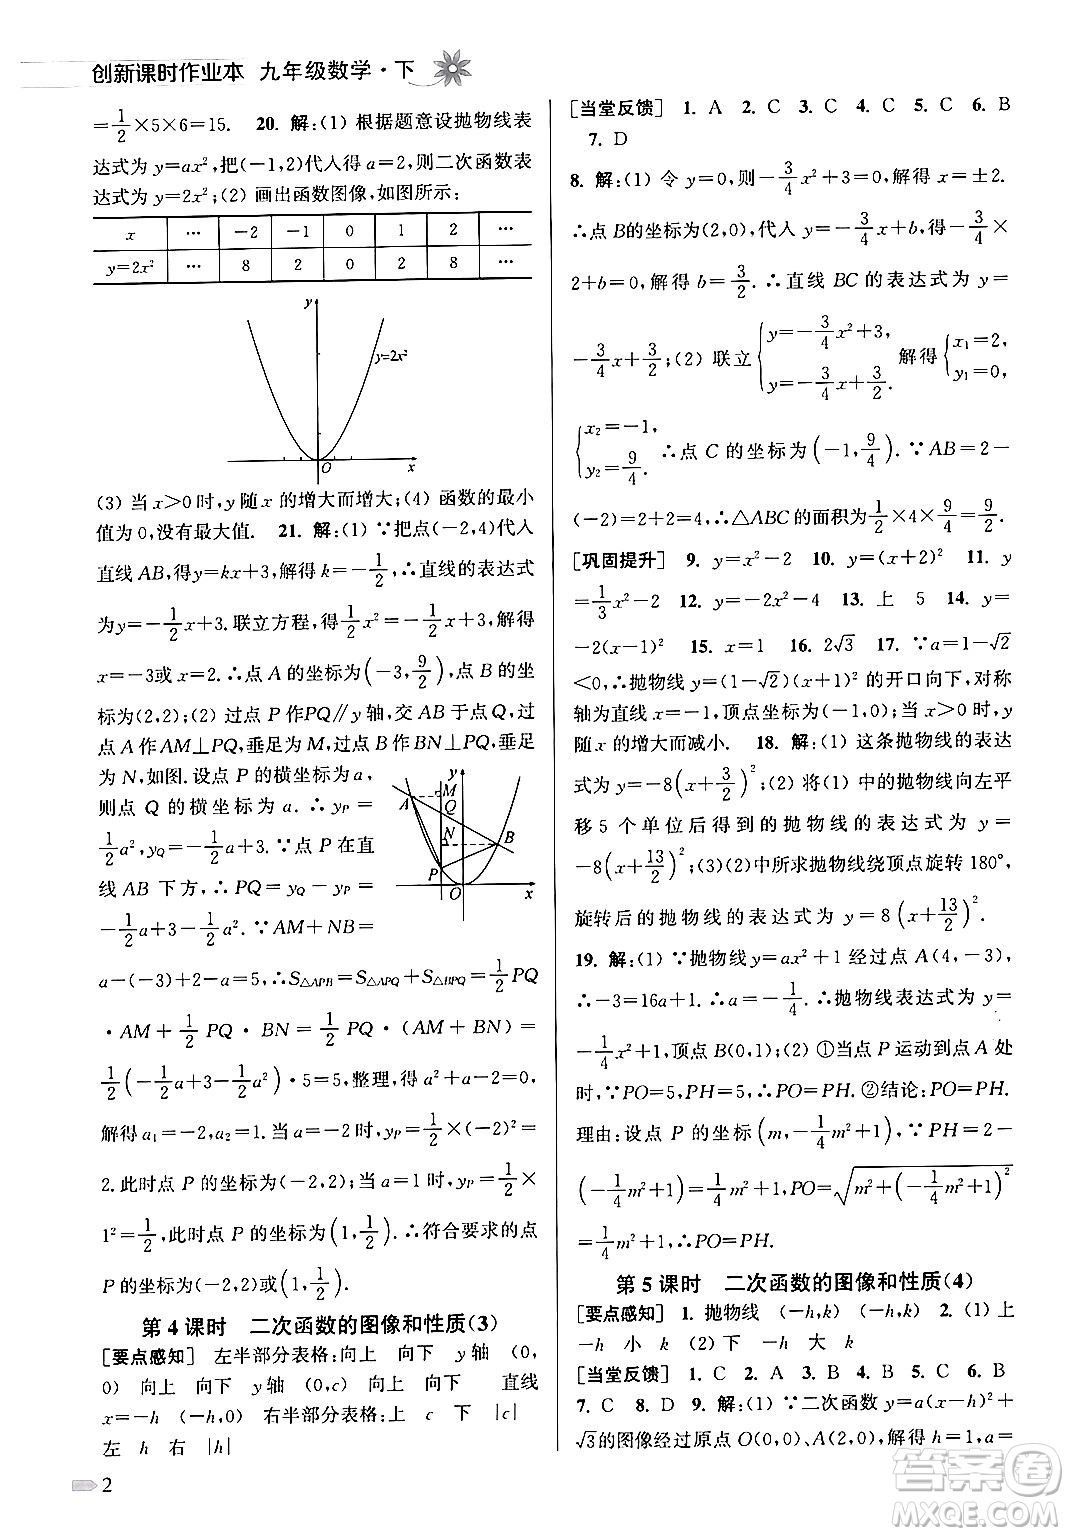 创新课时作业本 九年级数学·下
=1/2×5×6=15. 20. 解:(1) 根据题意设抛物线表
达式为 y=ax²,把(-1,2)代入得 a=2,则二次函数表
达式为 y=2x²;(2) 画出函数图像,如图所示:
x … -2 -1 0 1 2 …
y=2x² … 8 2 0 2 8 …
y
y=2x²
O x
(3) 当 x>0 时,y 随 x 的增大而增大;(4) 函数的最小
值为 0,没有最大值. 21. 解:(1) ∵把点(-2,4)代入
直线 AB,得 y=kx+3,解得 k=-1/2,∴直线的表达式
为y=-1/2x+3.联立方程,得 1/2x²=-1/2x+3,解得
x=-3或 x=2.∴点 A 的坐标为(-3,9/2),点 B 的坐
标为(2,2);(2) 过点 P 作PQ∥y 轴,交 AB 于点 Q,过
点 A 作 AM⊥PQ,垂足为 M,过点 B 作 BN⊥PQ,垂足
为 N,如图.设点 P 的横坐标为a,
则点 Q 的横坐标为 a. ∴ yP =
1/2a²,yQ=-1/2a+3. ∵点 P 在直
线 AB 下方,∴PQ = yQ - yP =
y
M
A
Q
N
B
P
O x
-1/2a+3-1/2a². ∵AM+NB=
a-(-3)+2-a=5,∴S△APB=S△APQ+S△BPQ=1/2PQ
·AM+1/2PQ·BN=1/2PQ·(AM+BN)=
1/2(-1/2a+3-1/2a²)·5=5,整理,得 a²+a-2=0,
解得 a₁=-2,a₂=1.当 a=-2 时,yP=1/2×(-2)²=
2.此时点 P 的坐标为(-2,2).当 a=1 时,yP=1/2×
1²=1/2,此时点 P 的坐标为(1,1/2).∴符合要求的点
P 的坐标为(-2,2)或(1,1/2).
第 4 课时 二次函数的图像和性质(3)
[要点感知] 左半部分表格:向上 向下 y 轴 (0,
0) 向上 向下 y 轴 (0,c) 向上 向下 直线
x=-h (-h,0) 右半部分表格:上 c 下 |c|
左 h 右 |h|
[当堂反馈] 1. A 2. C 3. C 4. C 5. C 6. B
7. D
8. 解:(1) 令 y=0,则-3/4x²+3=0,解得 x=±2.
∴点 B的坐标为(2,0),代入 y=-3/4x+b,得-3/4×
2+b=0,解得 b=3/2.∴直线 BC 的表达式为 y=
-3/4x+3/2;(2) 联立{y=-3/4x²+3, y=-3/4x+3/2. 解得{x₁=2, y₁=0,
{x₂=-1, y₂=9/4. ∴点 C 的坐标为(-1,9/4).∵AB=2-
(-2)=2+2=4,∴△ABC的面积为1/2×4×9/4=9/2.
[巩固提升] 9. y=x²-2 10. y=(x+2)² 11. y
=1/3x²-2 12. y=-2x²-4 13. 上 5 14. y=
-2(x-1)² 15. x=1 16. 2√3 17. ∵a=1-√2
<0,∴抛物线 y=(1-√2)(x+1)² 的开口向下,对称
轴为直线 x=-1,顶点坐标为(-1,0);当 x>0 时,y
随 x 的增大而减小. 18. 解:(1) 这条抛物线的表达
式为 y=-8(x+3/2)²;(2) 将(1) 中的抛物线向左平
移 5 个单位后得到的抛物线的表达式为 y=
-8(x+13/2)²;(3) 将(2)中所求抛物线绕顶点旋转 180°,
旋转后的抛物线的表达式为 y=8(x+13/2)².
19. 解:(1) ∵抛物线 y=ax²+1 经过点 A(4,-3),
∴-3=16a+1.∴a=-1/4.∴抛物线表达式为 y=
-1/4x²+1,顶点 B(0,1);(2) ①当点 P 运动到点 A 处
时,∵PO=5,PH=5,∴PO=PH. ②结论:PO=PH.
理由:设点 P 的坐标(m,-1/4m²+1),∵PH=2-
(-1/4m²+1)=1/4m²+1,PO=√(m²+(-1/4m²+1)²)=
1/4m²+1,∴PO=PH.
第 5 课时 二次函数的图像和性质(4)
[要点感知] 1. 抛物线 (-h,k) (-h,k) 2. (1) 上
-h 小 k (2) 下 -h 大 k
[当堂反馈] 1. C 2. A 3. B 4. B 5. C 6. B
7. C 8. D 9. 解:(1) ∵二次函数 y=a(x-h)²+
√3的图像经过原点 O(0,0)、A(2,0),解得 h=1,a=
2
答案圈
MXQE.COM